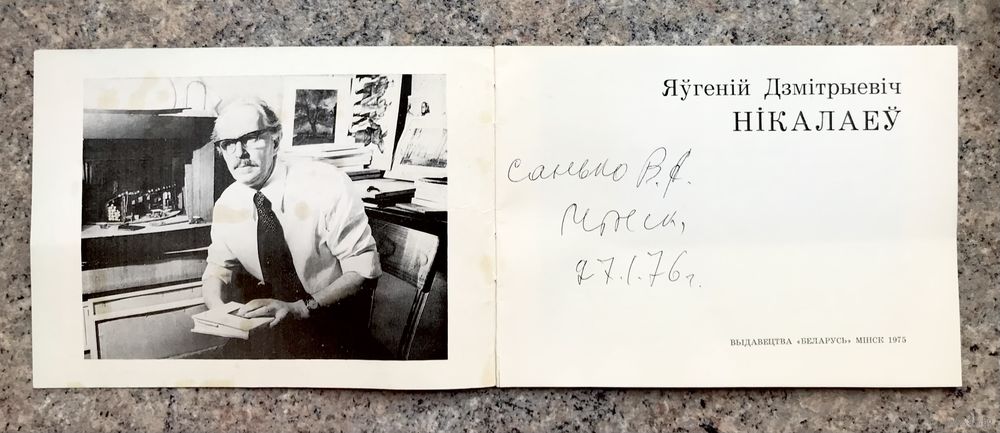 Яўгеній Дзмітрыевіч
НІКАЛАЕЎ
Санько В.А.
Минск,
27.I.76г.
ВЫДАВЕЦТВА «БЕЛАРУСЬ» МІНСК 1975